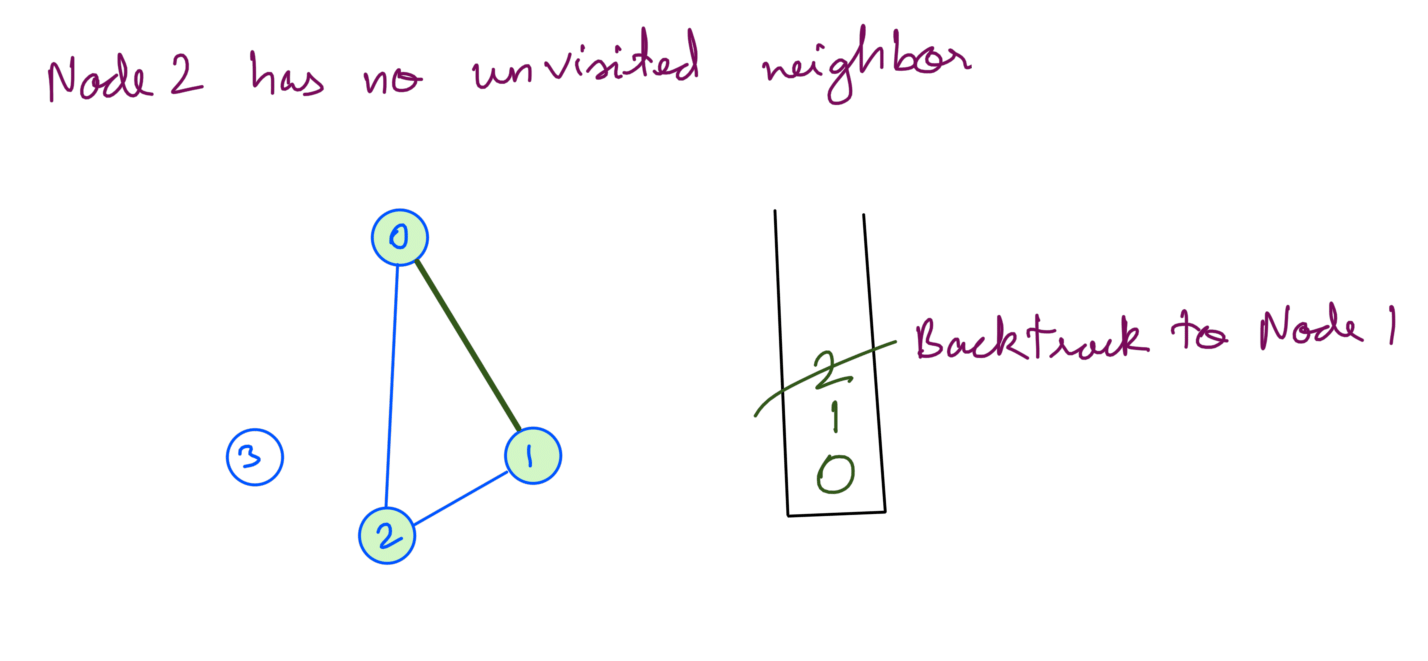 Node 2 has no unvisited neighbor
0
2
Backtrack to Node 1
1
3
1
0
2